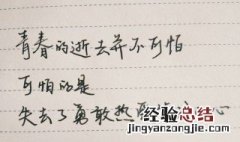 青春的逝去并不可怕
可怕的是
失去了勇敢热 心
经验总结
jingyanzongjie.com